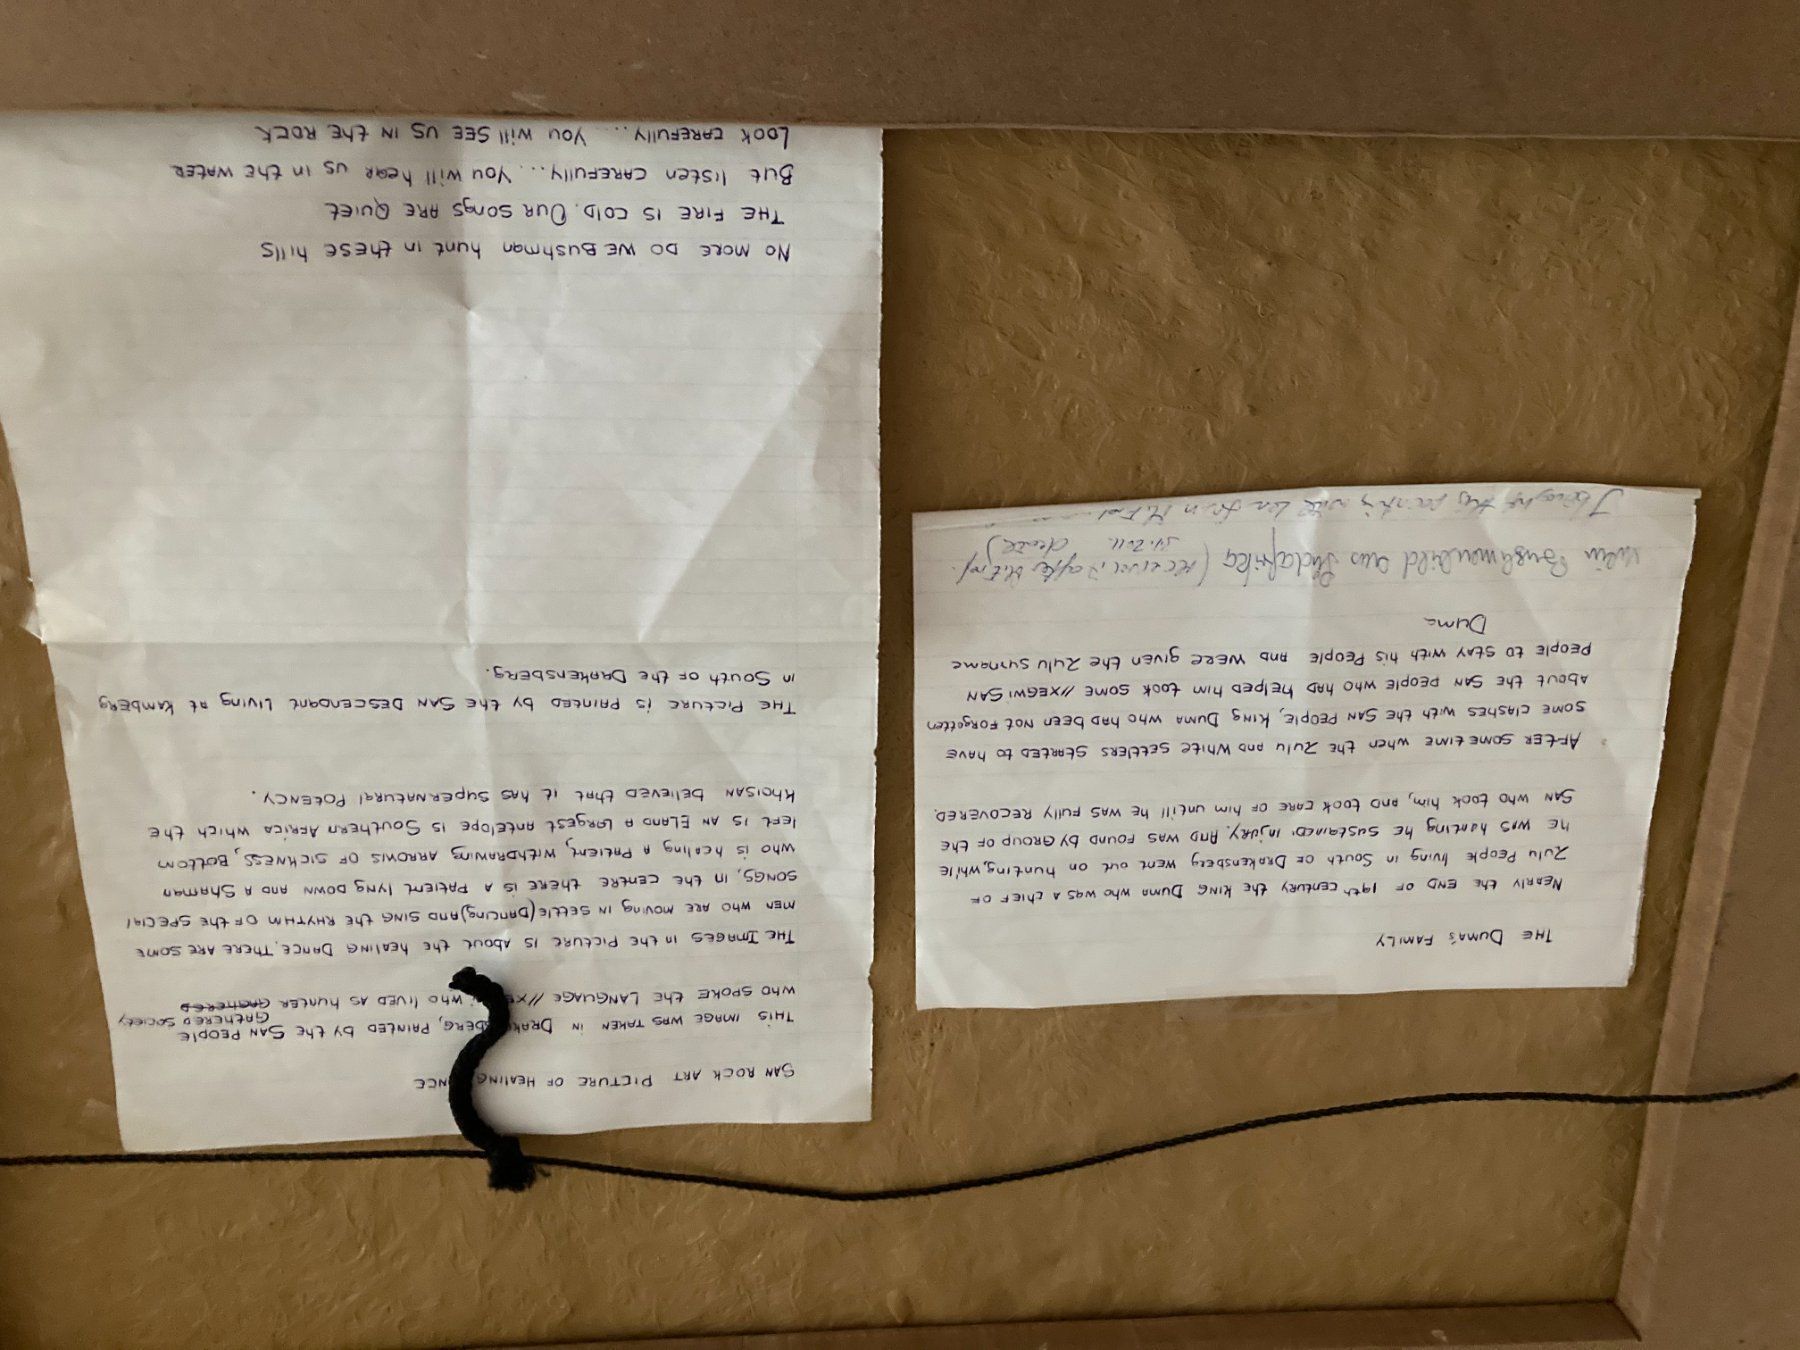 SAN ROCK ART PICTURE OF HEALING
THIS IMAGE WAS TAKEN IN DRAKENSBERG, PAINTED BY the SAN PEOPLE
WHO SPOKE the LANGUAGE //XE WHO LIVED AS hUNTER GAtHERED GAtHERED SOCIEty
THE IMAGES IN the PICTURE IS ABOUT the hEALING DANCE. THERE ARE SOME
MEN WHO ARE MOVING IN SETTLE (DANCING) AND SING the RHYTHM OF the SPECIAL
SONGS, IN the CENTRE thERE IS A PATIENT LYNG DOWN AND A SHAMAN
WHO IS hEALING A PATIENT, WITHDRAWING ARROWS OF SICKNESS, BOTTOM
LEFT IS AN ELAND A LARGEST ANTELOPE IS SOUTHERN AFRICA WHICH the
KHOISAN BELIEVED thAt It HAS SUPERNATURAL POTENCY.
THE PICTURE IS PAINTED BY the SAN DESCENDANT LIVING At KAMBERG
IN SOUTH OF the DRAKENSBERG.
NO MORE DO WE BUSHMAN hUNT IN thESE hills
THE FIRE IS COLD. OUR SONGS ARE QUIET
BUT LISTEN CAREFULLY... YOU WILL hEAR US IN the WATER
LOOK CAREFULLY... YOU WILL SEE US IN thE ROCK
THE DUMA'S FAMILY
NEARLY the END OF 19th CENTURY the KING DUMA WHO WAS A CHIEF OF
ZULU PEOPLE LIVING IN SOUTH OF DRAKENSBERG WENT OUT ON hUNTING, WHILE
HE WAS hUNTING HE SUSTAINED INJURY. AND WAS FOUND BY GROUP OF the
SAN WHO TOOK HIM, AND TOOK CARE OF HIM UNTILL HE WAS FULLY RECOVERED.
AFTER SOMETIME WHEN the ZULU AND WHITE SETTLERS STARTED to hAVE
SOME CLASHES WITH the SAN PEOPLE, KING DUMA WHO HAD BEEN NOT FORGOTTEN
ABOUT the SAN PEOPLE WHO HAD HELPED HIM TOOK SOME //XEGWI SAN
PEOPLE TO STAY WITH HIS PEOPLE AND WERE GIVEN the ZULU SURNAME
DUMA
Mein Buschmannbild aus Südafrika (
I bought this painting